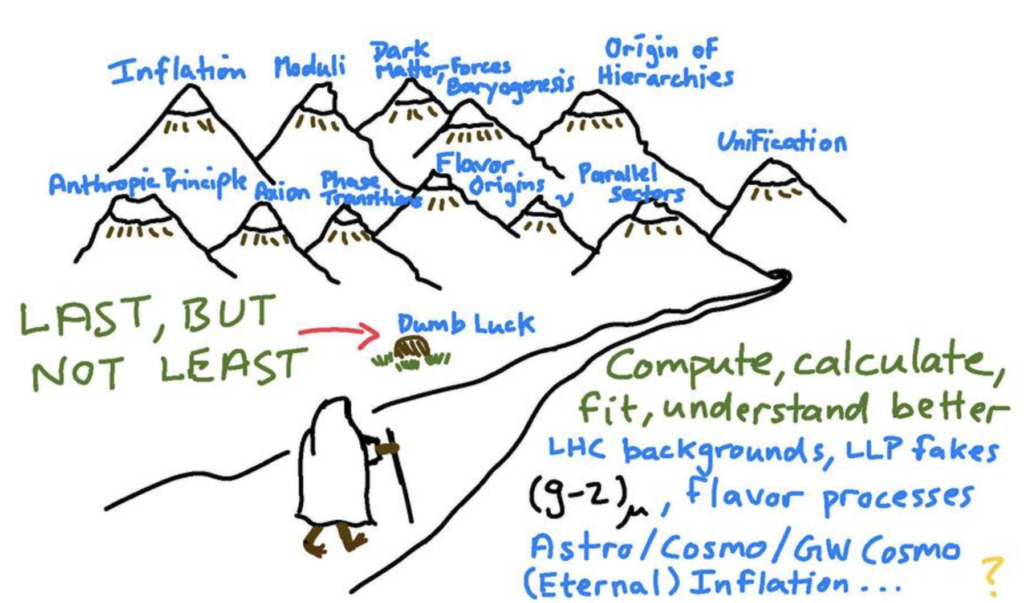 Inflation
Moduli
Dark
Matter, Forces
Baryogenesis
Origin of
Hierarchies
Unification
Anthropic Principle
Axion
Phase
Transitions
Flavor
Origins
ν
Parallel
Sectors
LAST, BUT
NOT LEAST
Dumb Luck
Compute, calculate,
fit, understand better
LHC backgrounds, LLP fakes
(g-2)μ, flavor processes
Astro/Cosmo/GW Cosmo
(Eternal) Inflation... ?